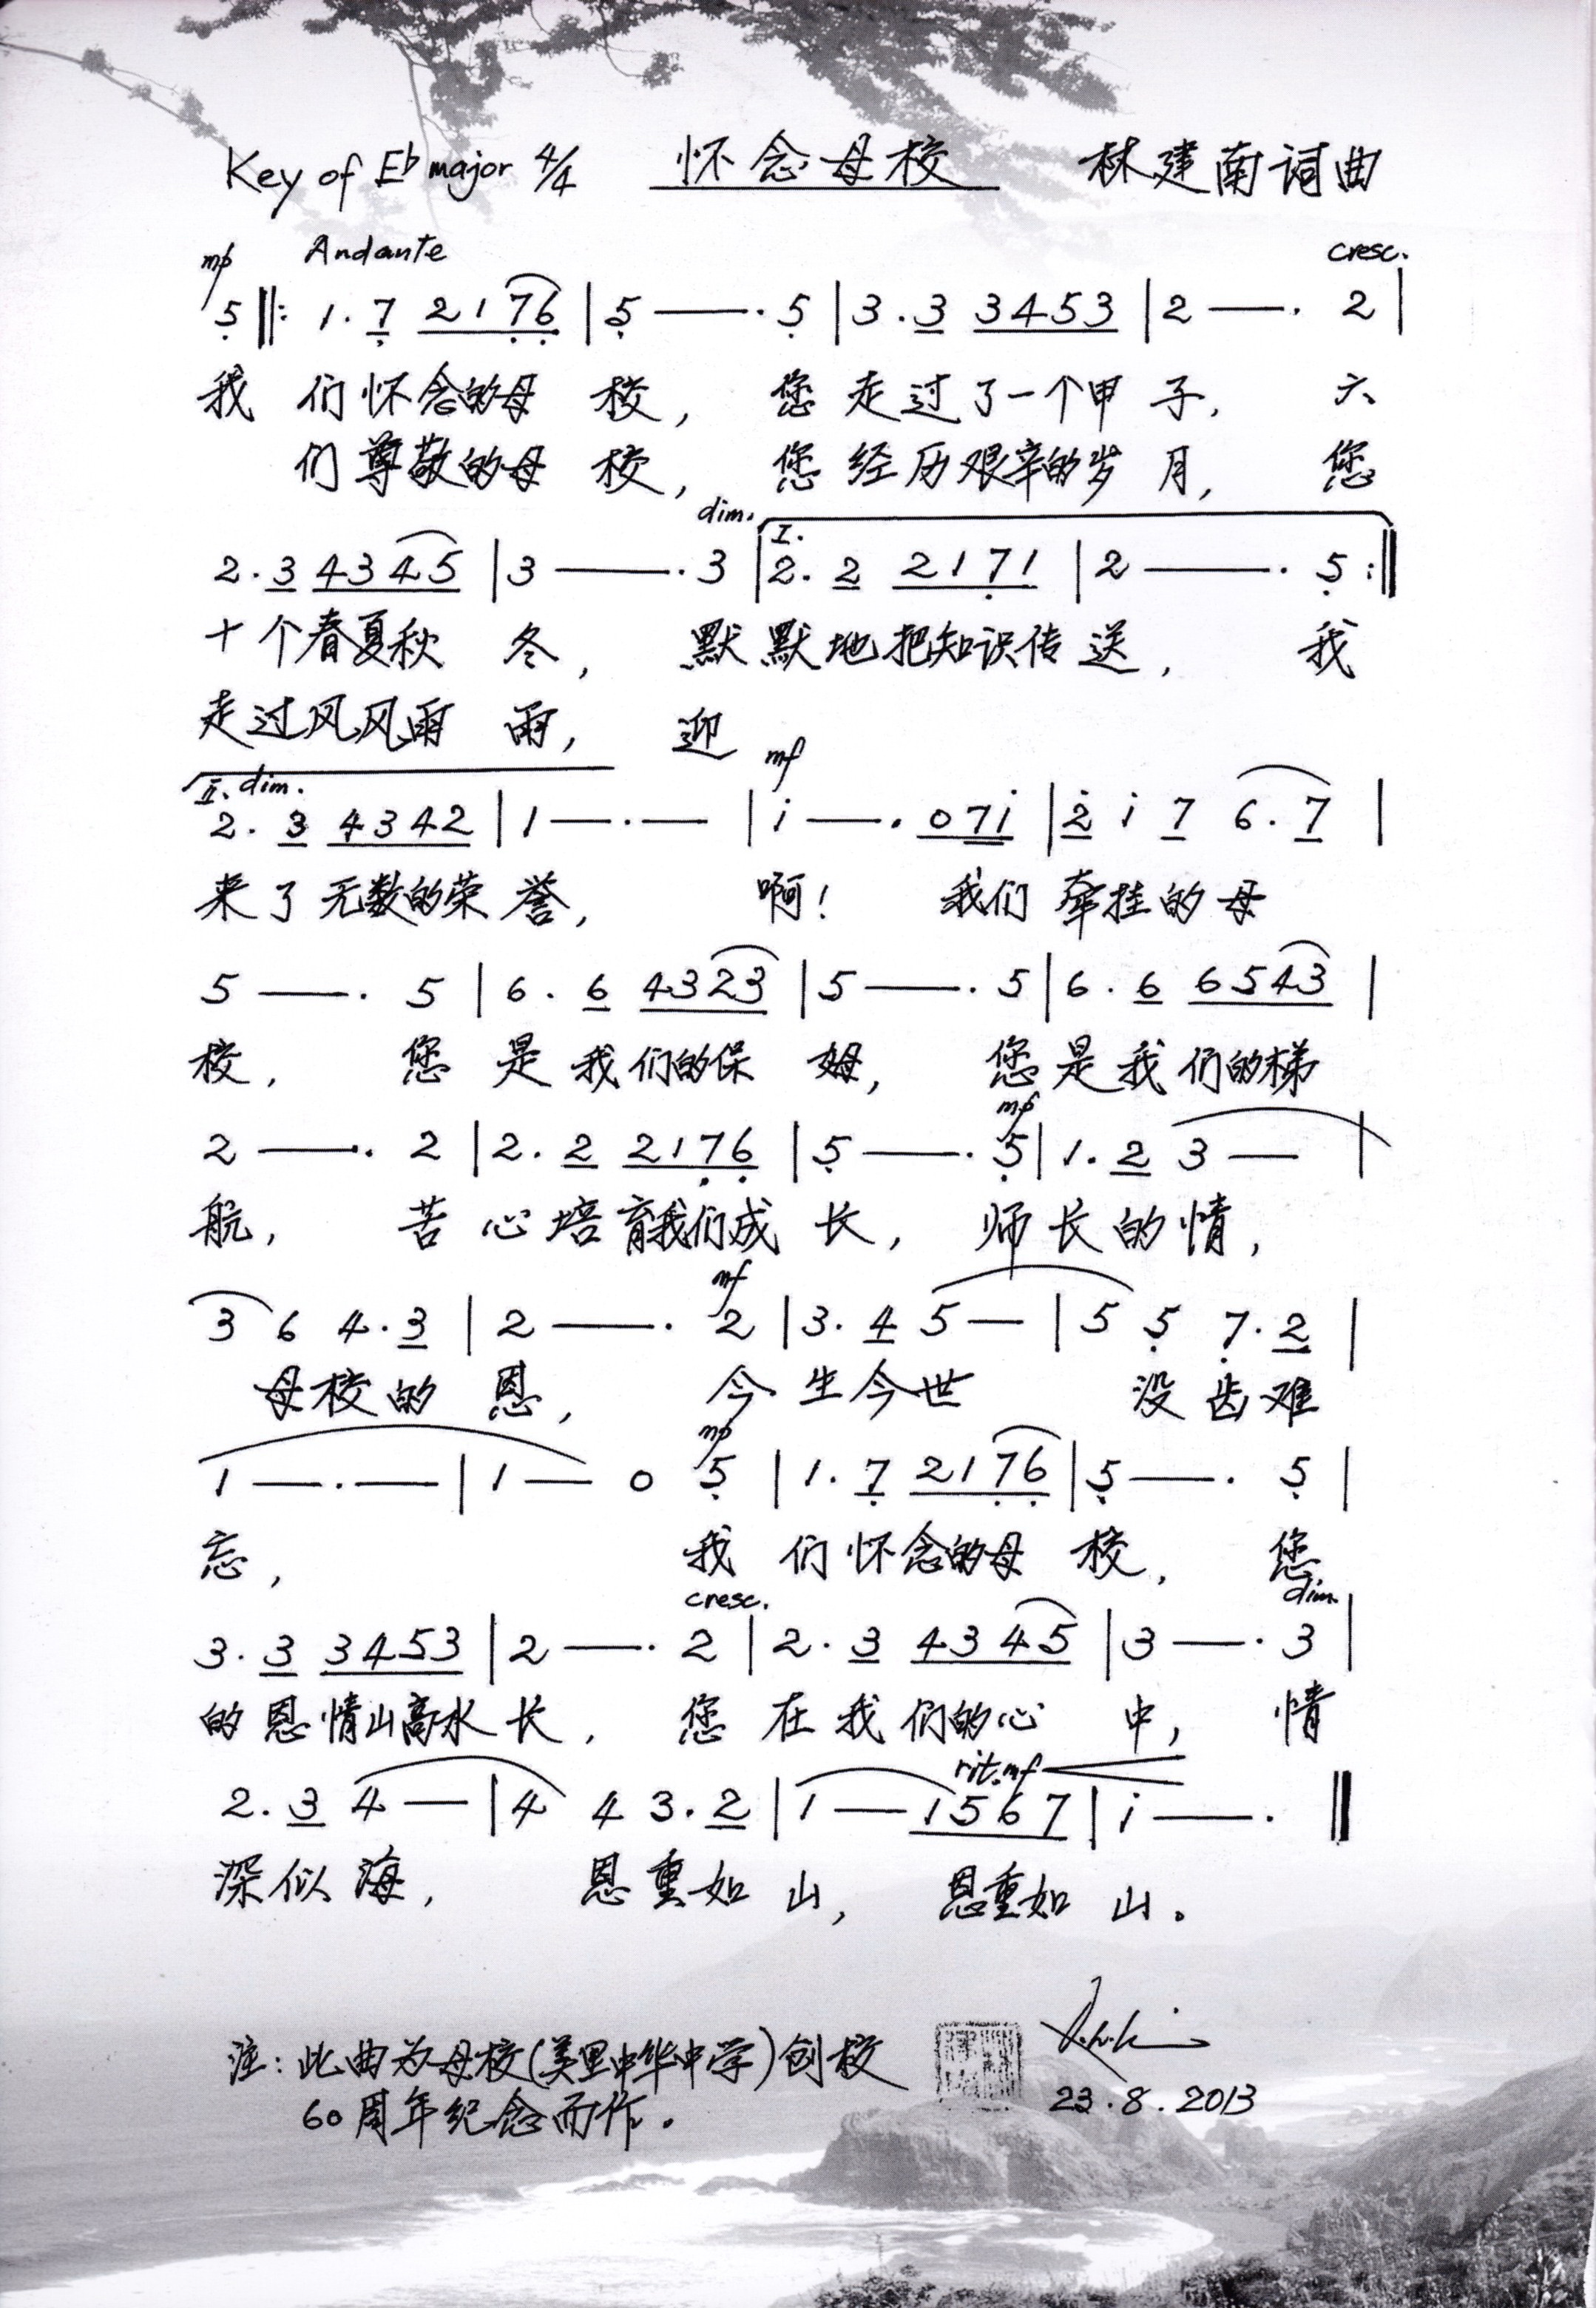 Key of E♭ major 4/4 怀念母校 林建南词曲
mp Andante cresc.
5 ‖: 1. 7 2 1 7 6 | 5 —. 5 | 3. 3 3 4 5 3 | 2 —. 2 |
我 们怀念的母 校, 您走过了一个甲 子, 六
们尊敬的母 校, 您经历艰辛的岁 月, 您
dim. I.
2. 3 4 3 4 5 | 3 —. 3 | 2. 2 2 1 7 1 | 2 —. 5 :‖
十个春夏秋 冬, 默默地把知识传送, 我
走过风风雨 雨, 迎
II. dim. mf
2. 3 4 3 4 2 | 1 —. — | i —. 0 7 i | 2 i 7 6. 7 |
来了无数的荣 誉, 啊! 我们牵挂的母
5 —. 5 | 6. 6 4 3 2 3 | 5 —. 5 | 6. 6 6 5 4 3 |
校, 您 是我们的保 姆, 您是我们的梯
mp
2 —. 2 | 2. 2 2 1 7 6 | 5 —. 5 | 1. 2 3 — |
航, 苦 心培育我们成 长, 师长的情,
mf
3 6 4. 3 | 2 —. 2 | 3. 4 5 — | 5 5 7. 2 |
母校的 恩, 今生今世 没齿难
mp
1 —. — | 1 — 0 5 | 1. 7 2 1 7 6 | 5 —. 5 |
忘, 我 们怀念的母 校, 您
cresc. dim.
3. 3 3 4 5 3 | 2 —. 2 | 2. 3 4 3 4 5 | 3 —. 3 |
的恩情山高水 长, 您 在我们的心 中, 情
rit. mf
2. 3 4 — | 4 4 3. 2 | 1 — 1 5 6 7 | i —. ‖
深似海, 恩重如 山, 恩重如 山。
注: 此曲为母校(美里中华中学)创校
60周年纪念而作。
23.8.2013